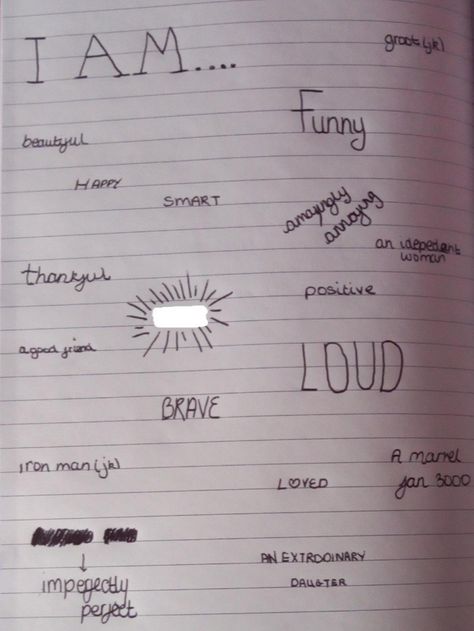 I AM....
groot (jk)
Funny
beautyful
HAPPY
SMART
amazingly
annoying
an idependent
woman
thankful
positive
a good friend
LOUD
BRAVE
iron man (jk)
A marvel
fan 3000
LOVED
imperfectly
perfect
AN EXTRDOINARY
DAUGTER